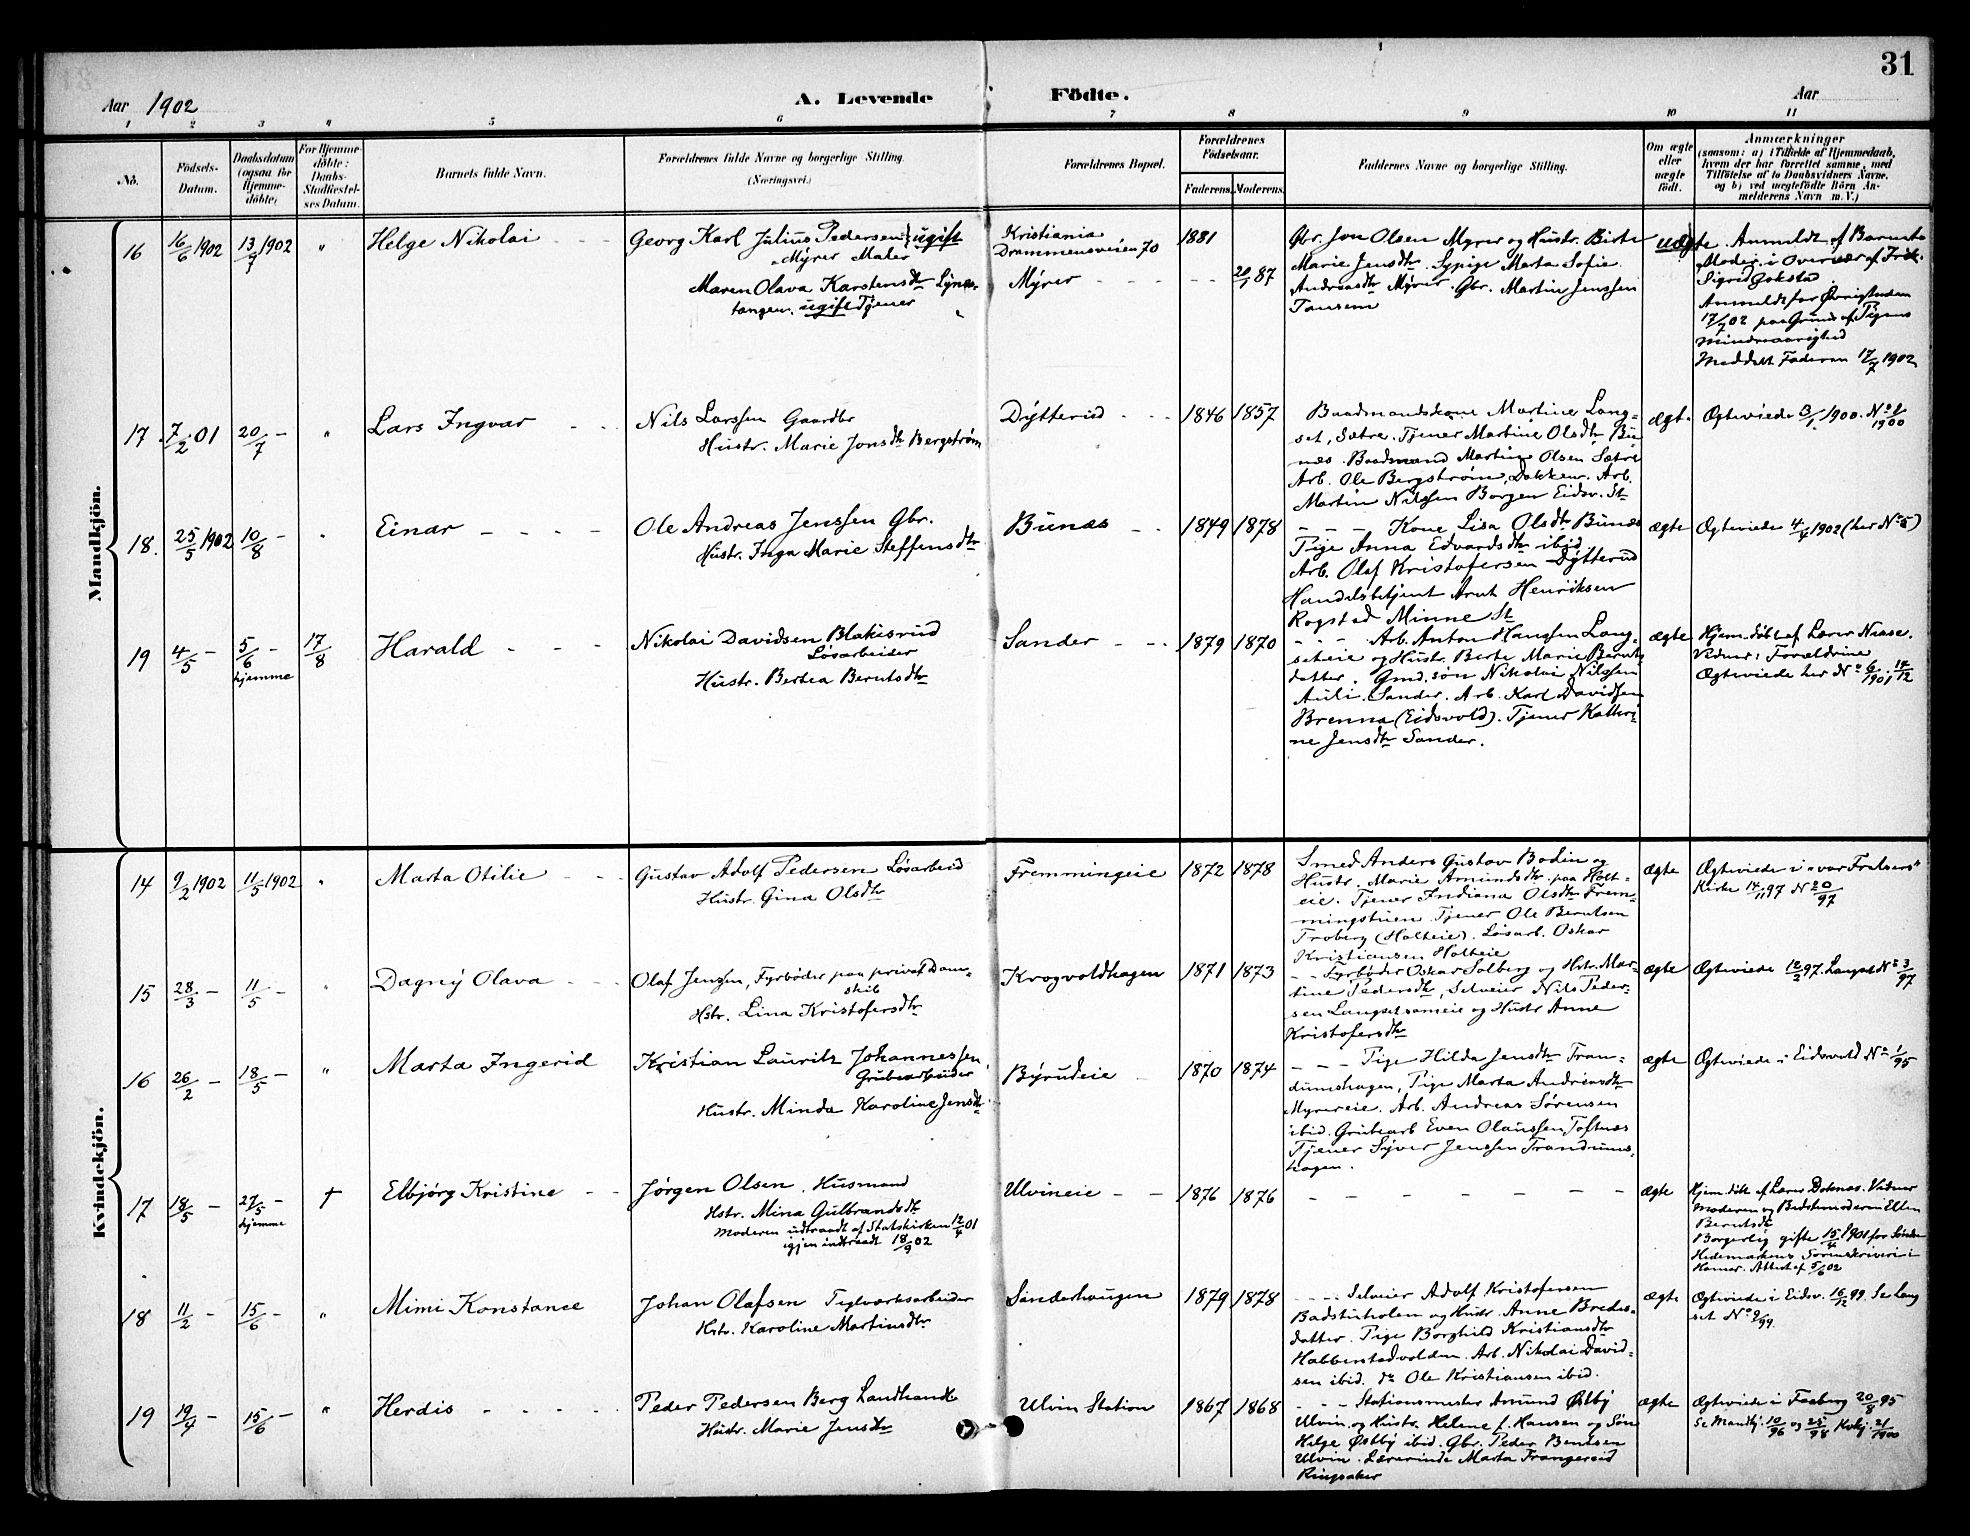 31
Aar 1902
A. Levende Födte.
Aar
1 2 3 4 5 6 7 8 9 10 11
No.
Födsels-Datum.
Daabsdatum (ogsaa for Hjemme-döbte)
For Hjemme-döbte: Daabs-Stadfæstel-ses Datum.
Barnets fulde Navn.
Forældrenes fulde Navne og borgerlige Stilling. (Næringsvei.)
Forældrenes Bopæl.
Forældrenes Födselsaar.
Faderens. Moderens.
Faddernes Navne og borgerlige Stilling.
Om ægte eller uægte födt.
Anmærkninger
(saasom: a) i Tilfælde af Hjemmedaab,
hvem der har forrettet samme, med
Tilföielse af to Daabsvidners Navne.
og b) ved uægtefödte Börn An-
melderens Navn m. V.)
Mandkjön.
16 16/6 1902 13/7 1902 " Helge Nikolai
Georg Karl Julius Pedersen ugift
Myrer Maler
Maren Olava Karstensdtr Lynes-
tangen. ugift Tjener
Kristiania
Drammensveien 70
Myrer
1881
20/1 87
Gbr. Jon Olsen Myrer og Hustr. Birte
Marie Jensdtr. Sypige Marta Sofie
Andreasdtr Myrer. Gbr. Martin Jenssen
Tausem
uægte. Anmeldt af Barnets
Moder i Overvær af Frk.
Sigrid Gokstad
Anmeldt for Øvrigheden
17/7 02 paa Grund af Pigens
Mindreaarighed
Meddelt Faderen 17/7 1902
17 7/2 01 20/7 - " Lars Ingvar
Nils Larssen Gaardbr
Hustr. Marie Jonsdtr Bergstrøm
Dytterud
1846 1857
Baadmandskone Martine Lang-
set, Sætre. Tjener Martine Olsdtr Bu-
næs. Baadmand Martin Olsen Sætre
Arb. Ole Bergstrøm, Dokken. Arb.
Martin Nilssen Borgen Eidsv. St
ægt.
Ægteviede 3/1 1900. No 1/1900
18. 25/5 1902 10/8 - " Einar
Ole Andreas Jenssen Gbr.
Hustr. Inga Marie Steffensdtr
Bunæs
1849 1878
- - - Kone Lisa Olsdtr Bunæs
Pige Anna Edvardsdtr ibid.
Arb. Olaf Kristofersen Dytterud
Handelsbetjent Arnt Henriksen
Rogstad Minne St
ægte
Ægteviede 4/4 1902 (her No 5)
19 4/5 - 5/6 - hjemme 17/8 Harald
Nikolai Davidsen Blakisrud
Løsarbeider
Hustr. Bertea Berntsdtr
Sander
1879 1870
- - - Arb. Anton Hanssen Lang-
seteie og Hustr. Berte Marie Bernts-
datter. Gmd. søn Nikolai Nilssen
Auli. Sander. Arb. Karl Davidsen
Brenna (Eidsvold). Tjener Kathri-
ne Jensdtr Sander.
ægte
Hjem. døbt af Lærer
Vidner: Forældrene
Ægteviede her No 6/1901. 14/12
Kvindekjön.
14 9/2 1902 11/5 1902 " Marta Otilie
Gustav Adolf Pedersen Løsarbeid
Hustr. Gina Olsdtr
Fremmingeie
1872 1878
Smed Anders Gustav Bodin og
Hustr. Marie Amundsdtr. paa Holt-
eie. Tjener Indiana Olsdtr Frem-
mingstuen. Tjener Ole Berntsen
Troberg (Holteie). Løsarb. Oskar
Kristiansen Holteie
ægte
Ægteviede i "vor Frelsers"
Kirke 14/11 97 No 20/97
15 28/3 - 11/5 - " Dagny Olava
Olaf Jenssen, Fyrbøder paa privat Dam-
skib
Hstr. Lina Kristofersdtr
Krogvoldhagen
1871 1873
- - Fyrbøder Oskar Solberg og Hstr. Mar-
tine Pedersdtr, Selveier Nils Peder-
sen Langset sameie og Hustr Anne
Kristofersdtr
ægte
Ægteviede 12/2 97. Langset No 3/97
16 26/2 - 18/5 - " Marta Ingerid
Kristian Lauritz Johannessen,
Grubearbeider
Hustr. Minda Karoline Jensdtr.
Byrudeie
1870 1874
- - - Pige Hilda Jensdtr Tran-
dumshagen, Pige Marta Andreasdtr
Myrereie. Arb. Andreas Sørensen
ibid. Grubearb Even Olaussen, Toftnæs
Tjener Syver Jenssen Trandums-
hagen.
ægte
Ægteviede i Eidsvold No 1/95
17 18/5 - 27/5 - hjemme † Elbjørg Kristine
Jørgen Olsen. Husmand
Hstr. Mina Gulbrandsdtr
Moderen udtraadt af Statskirken 12/4 01
igjen indtraadt 18/9 02
Ulvineie
1876 1876
ægte
Hjem. døbt af Lærer Doknæs. Vidner
Moderen og Bedstemoderen Ellen
Berntsdtr
Borgerlig gifte 15/4 1901 for Søndre
Hedemarkens Sorenskriveri i
Hamar. Attest af 5/6 02
18 11/2 - 15/6 - " Mimi Konstance
Johan Olafsen Teglværksarbeider
Hstr. Karoline Martinsdtr
Sanderhaugen
1879 1878
- - - Selveier Adolf Kristofersen
Badstuholen og Hustr. Anne Bredes-
datter. Pige Borghild Kristiansdtr
Habberstadvolden. Arb. Nikolai David-
sen ibid. do Ole Kristiansen ibid.
ægte
Ægteviede i Eidsv. 16/12 99. Se Lang
set No 9/99.
19 19/4 - 15/6 - " Herdis
Peder Pedersen Berg Landhandl
Hustr. Marie Jensdtr
Ulvin Station
1867 1868
- - - Stationsmester Amund Østby
Ulvin og Hustr. Helene f. Hansen og Søn
Helge Østby ibid. Gbr. Peder Bentsen
Ulvin. Lærerinde Marta Frangereid
Ringsaker
ægte
Ægteviede i Faaberg 20/8 95
Se Mandkj. 10/96 og 25/98 Kvkj 21/1900